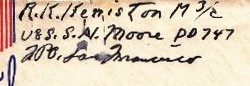 R.K. Kemiston M 3/c
U.S.S. S.N. Moore DD747
℅ F.P.O. San Francisco